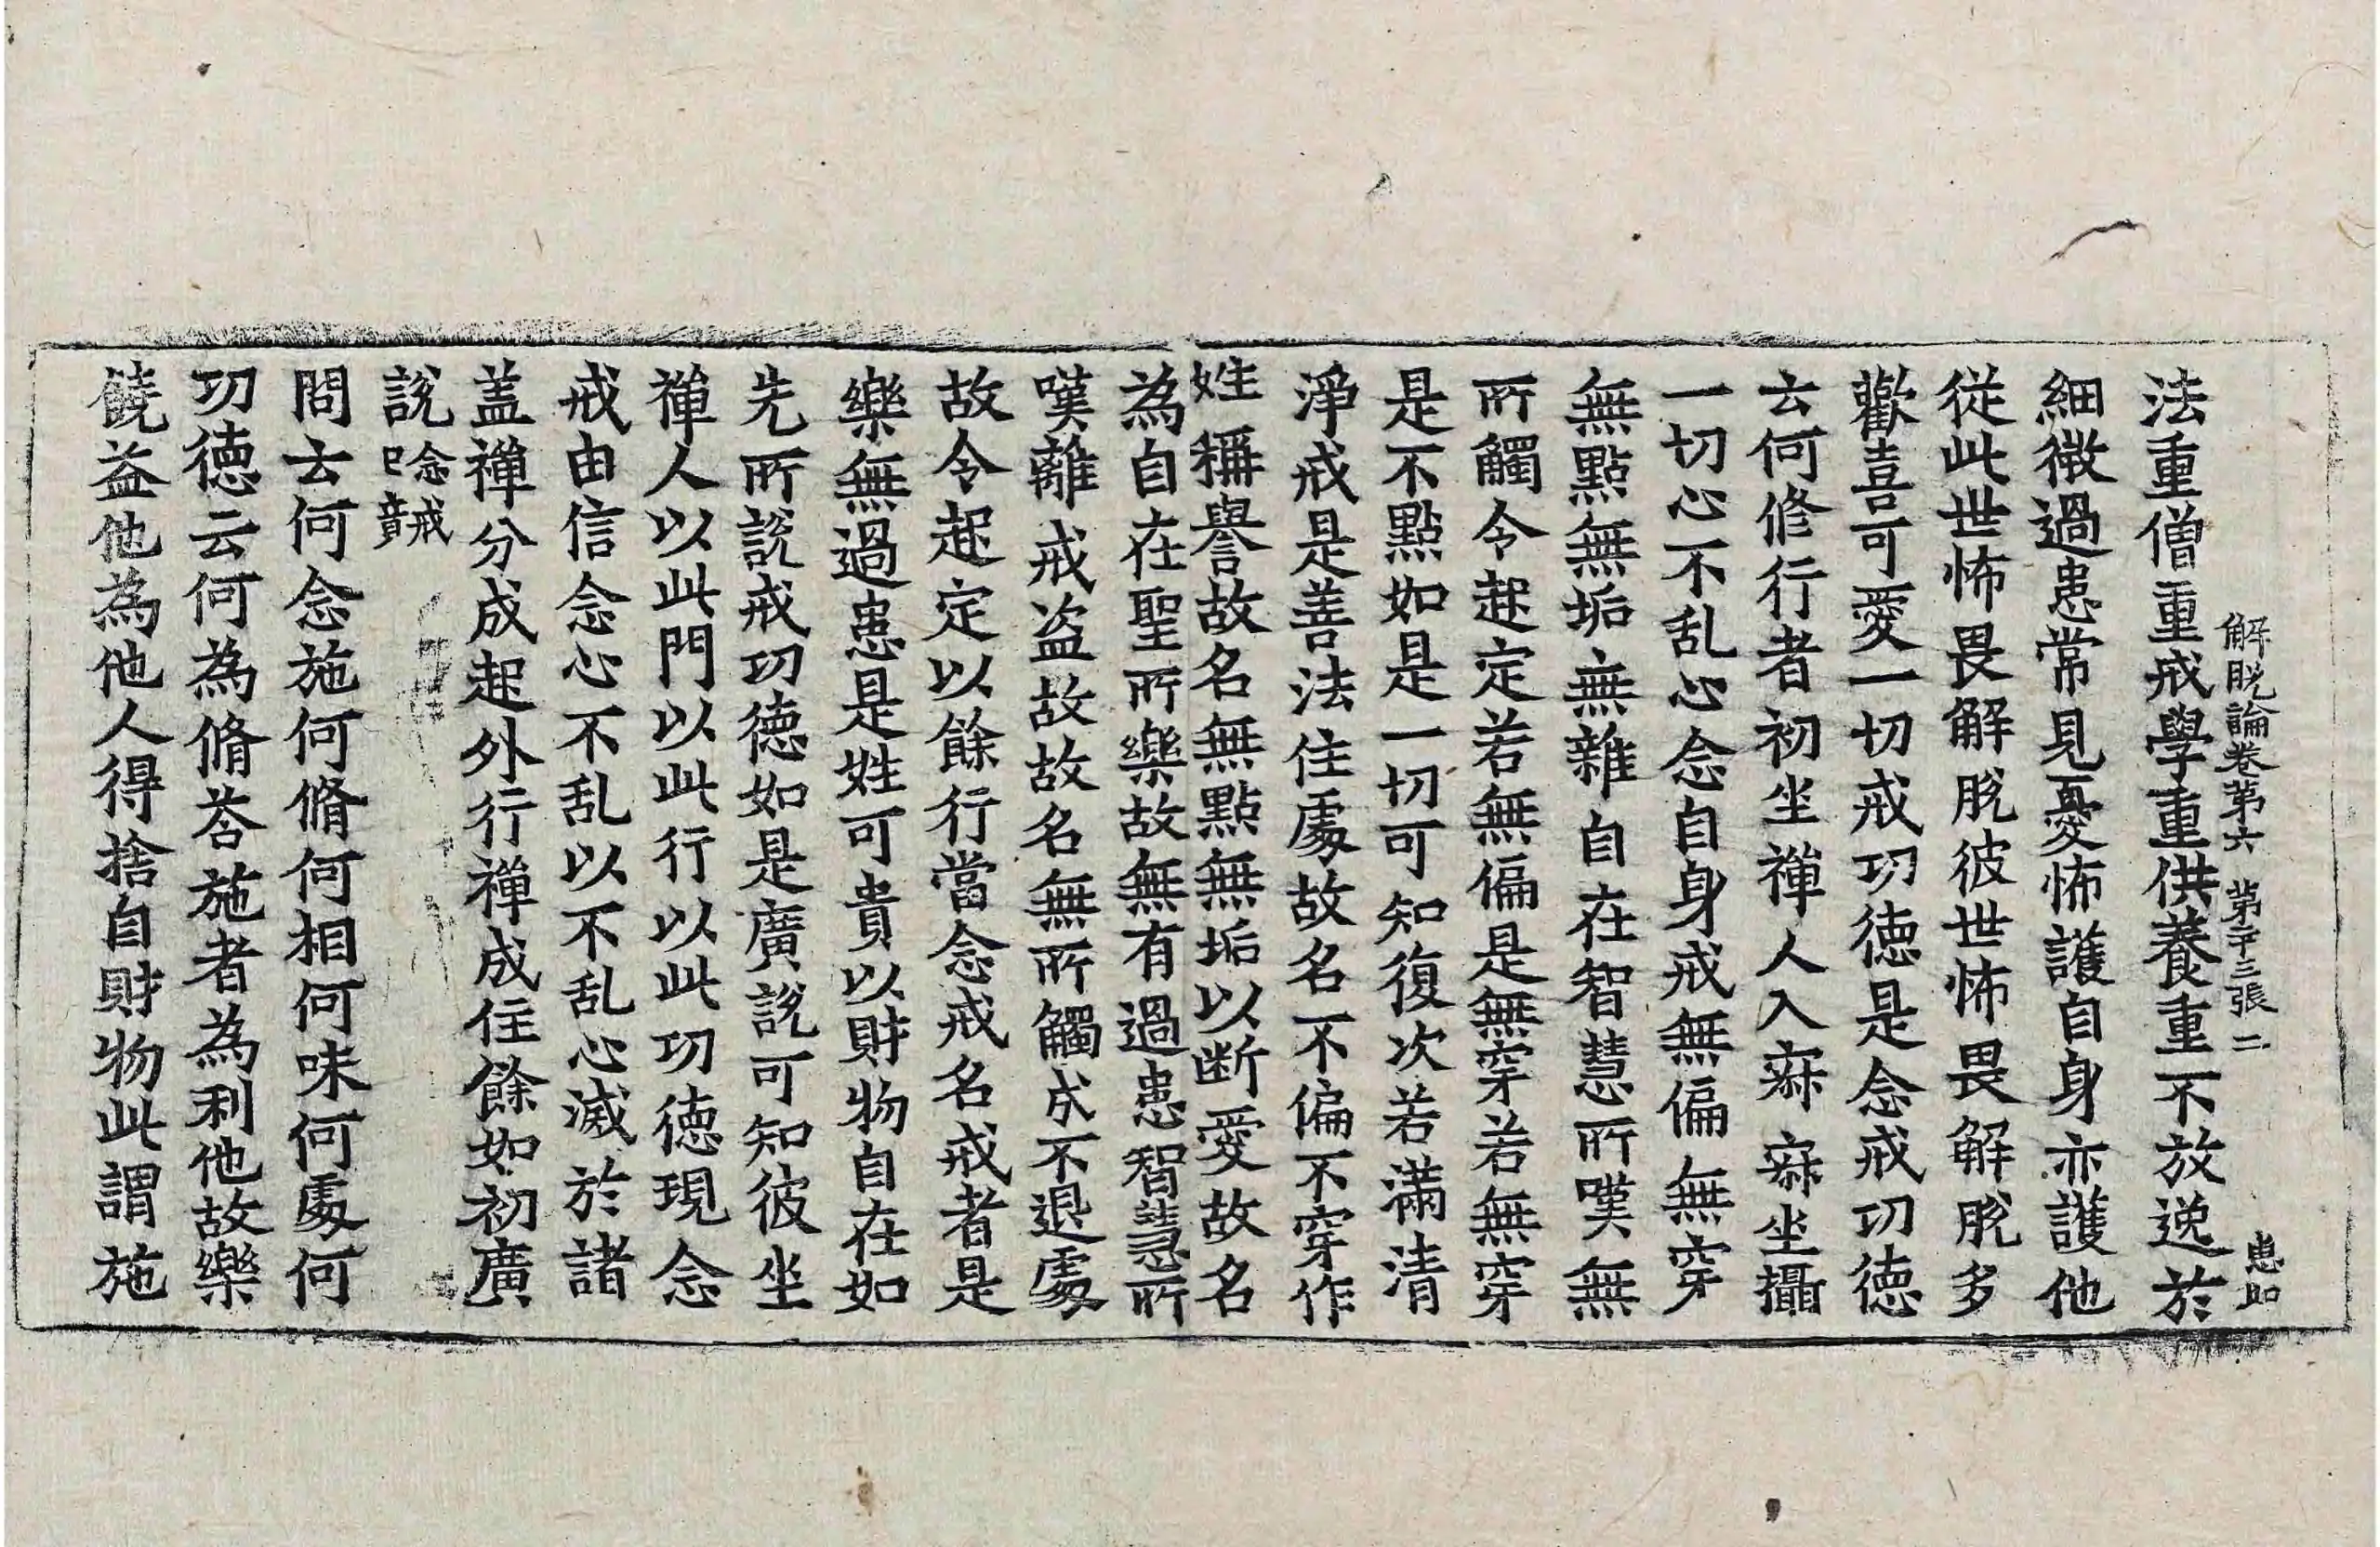 解脫論卷第六 第二十三張 二 惠如
法重僧重戒學重供養重不放逸於
細微過患常見憂怖護自身亦護他
從此世怖畏解脫彼世怖畏解脫多
歡喜可愛一切戒功德是念戒功德
云何修行者初坐禪人入寂寂坐攝
一切心不乱心念自身戒無偏無穿
無點無垢無雜自在智慧所嘆無
所觸令起定若無偏是無穿若無穿
是不點如是一切可知復次若滿清
淨戒是善法住處故名不偏不穿作
姓稱譽故名無點無垢以断愛故名
為自在聖所樂故無有過患智慧所
嘆離戒盜故故名無所觸成不退處
故令起定以餘行當念戒名戒者是
樂無過患是姓可貴以財物自在如
先所說戒功德如是廣說可知彼坐
禪人以此門以此行以此功德現念
戒由信念心不乱以不乱心滅於諸
盖禪分成起外行禪成住餘如初廣
說念戒巳竟
問云何念施何脩何相何味何處何
功德云何為脩荅施者為利他故樂
饒益他為他人得捨自財物此謂施